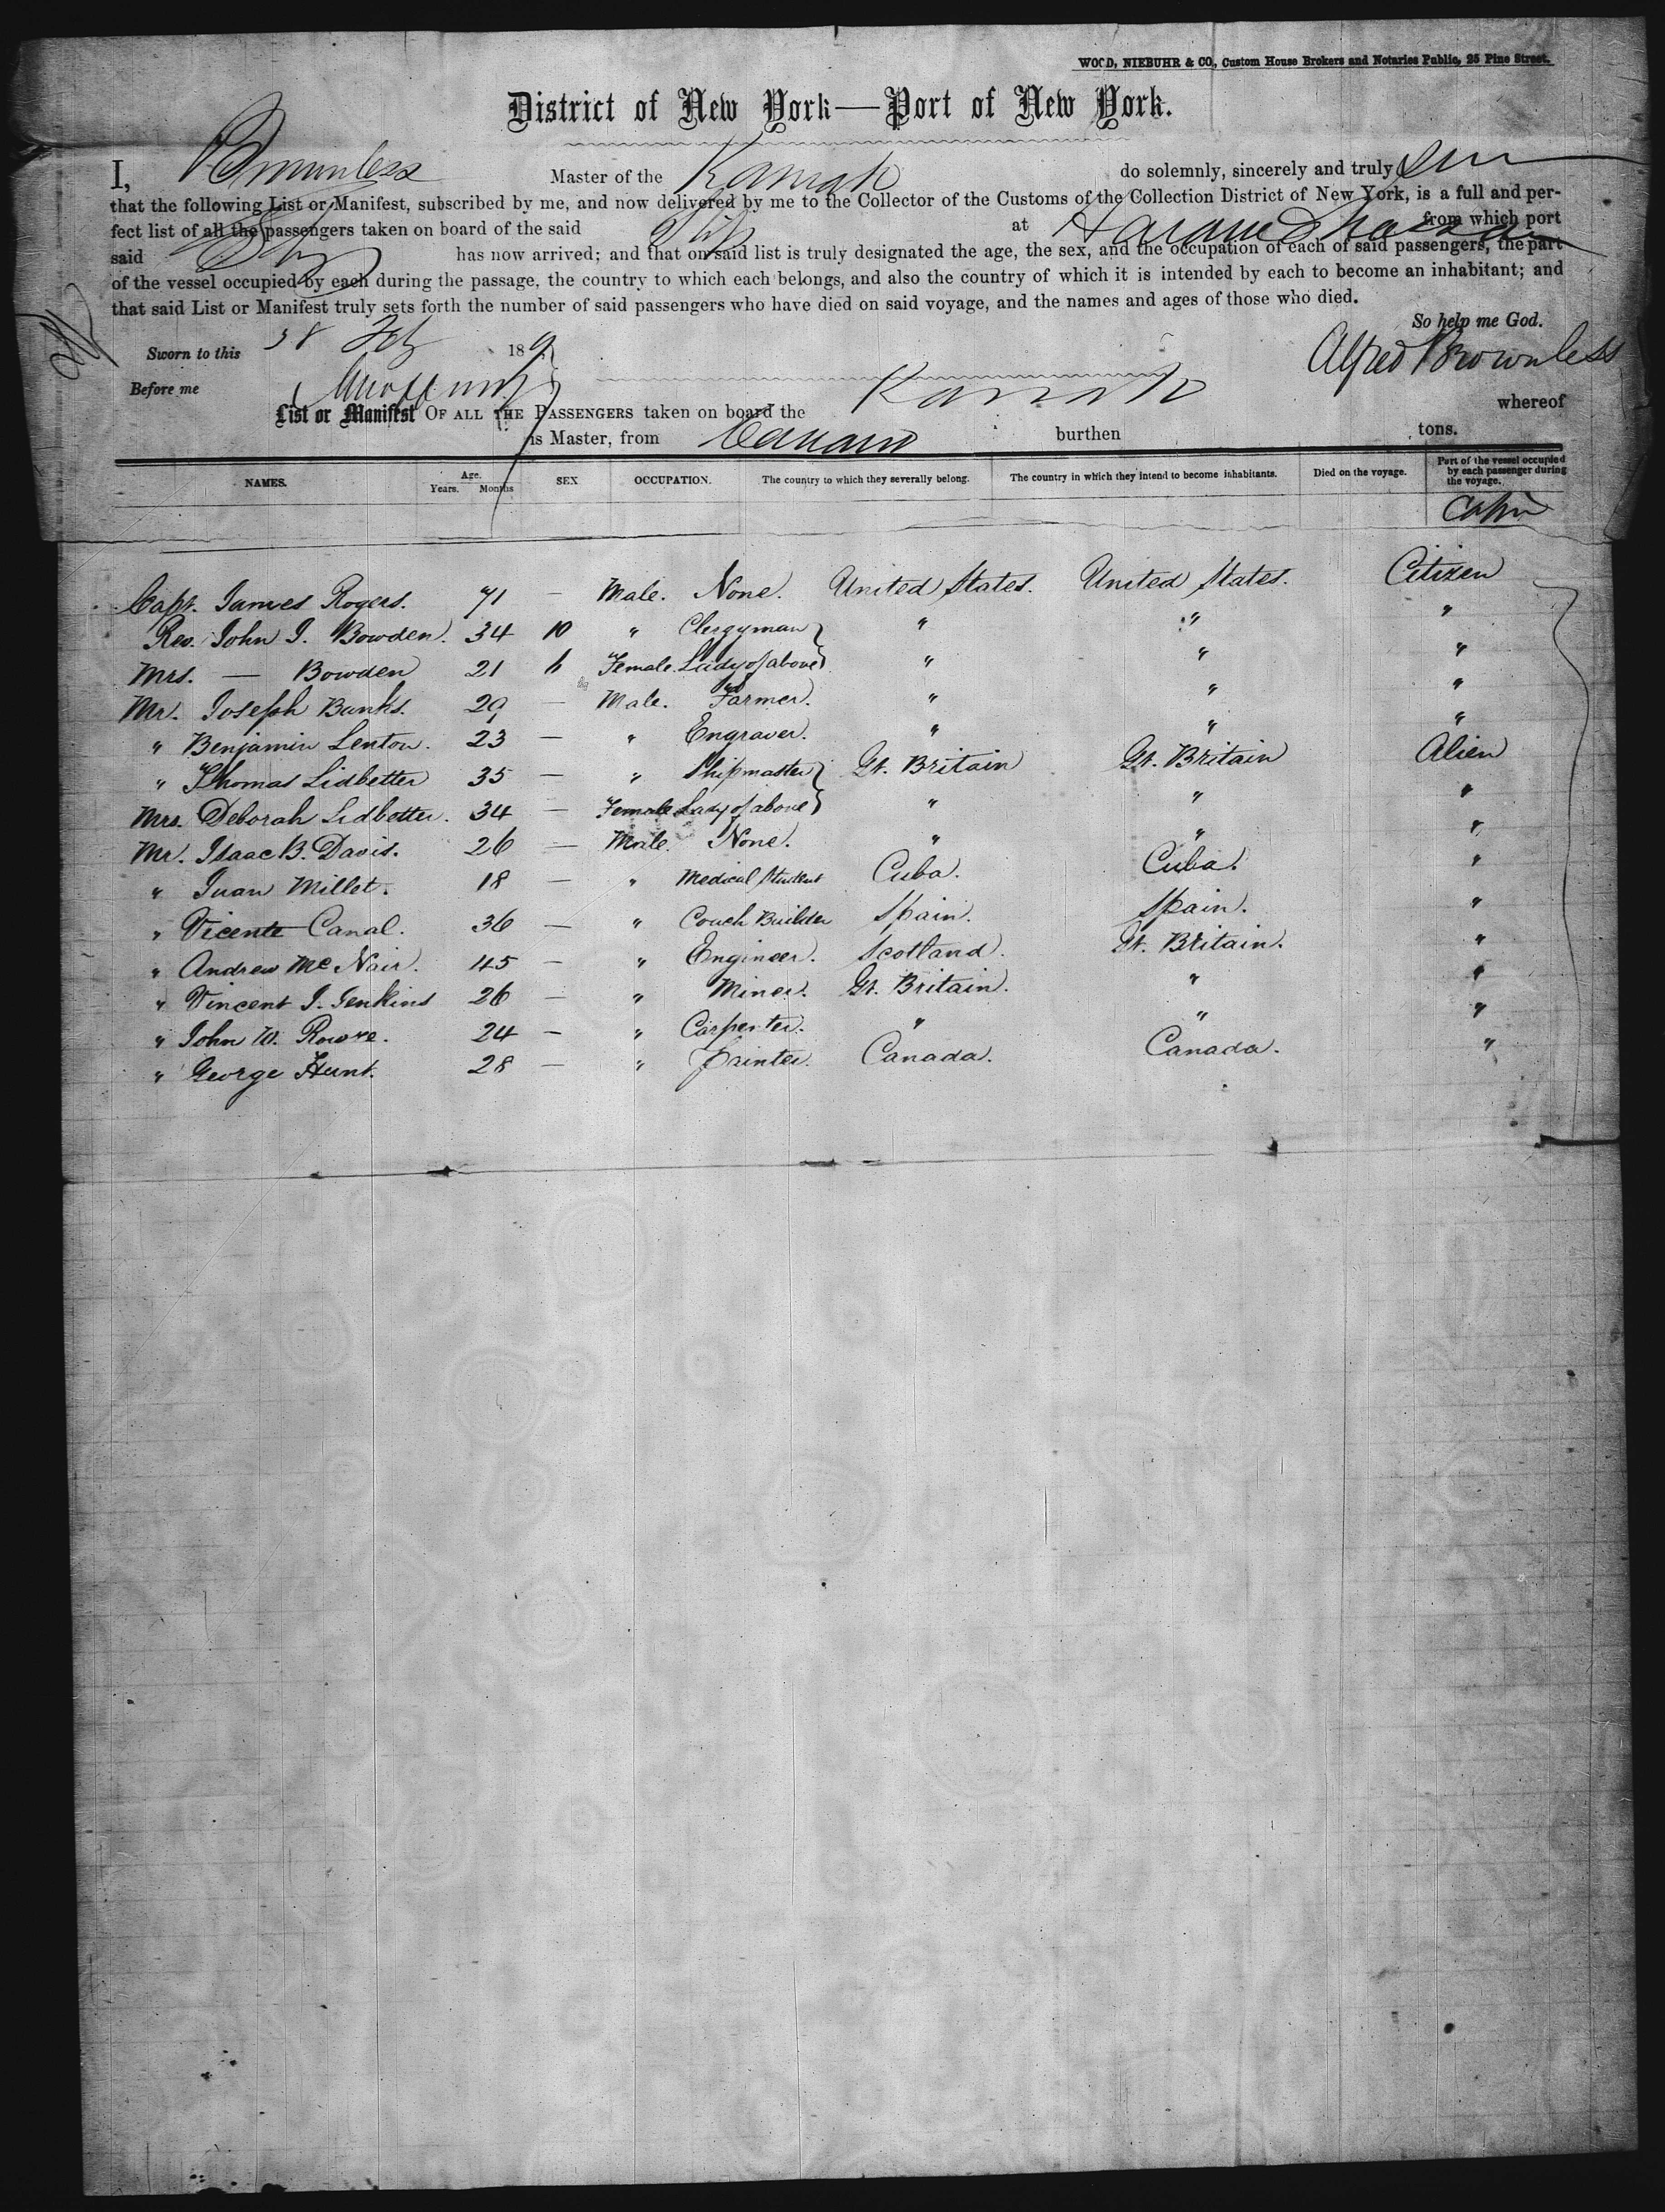 WOOD, NIEBUHR & CO., Custom House Brokers and Notaries Public, 25 Pine Street.
District of New York—Port of New York.
I, Brownless Master of the Karnak do solemnly, sincerely and truly
that the following List or Manifest, subscribed by me, and now delivered by me to the Collector of the Customs of the Collection District of New York, is a full and per-
fect list of all the passengers taken on board of the said Ship at Havana & Nassau from which port
said Ship has now arrived; and that on said list is truly designated the age, the sex, and the occupation of each of said passengers, the part
of the vessel occupied by each during the passage, the country to which each belongs, and also the country of which it is intended by each to become an inhabitant; and
that said List or Manifest truly sets forth the number of said passengers who have died on said voyage, and the names and ages of those who died.
So help me God.
Sworn to this Feb 18 Alfred Brownless
Before me
List or Manifest OF ALL THE PASSENGERS taken on board the Karnak whereof
is Master, from burthen tons.
NAMES. Age. Years. Months SEX OCCUPATION. The country to which they severally belong. The country in which they intend to become inhabitants. Died on the voyage. Part of the vessel occupied by each passenger during the voyage.
Cabin
Capt. James Rogers. 71 — Male. None. United States. United States. Citizen
Rev. John J. Bowden. 34 10 " Clergyman " " "
Mrs. — Bowden 21 6 Female. Lady of above " " "
Mr. Joseph Banks. 29 — Male. Farmer. " " "
" Benjamin Lenton. 23 — " Engraver. " " "
" Thomas Lidbetter 35 — " Shipmaster Gt. Britain Gt. Britain Alien
Mrs. Deborah Lidbetter. 34 — Female Lady of above " " "
Mr. Isaac B. Davis. 26 — Male. None. " " "
" Juan Millet. 18 — " Medical Student Cuba. Cuba. "
" Vicente Canal. 36 — " Coach Builder Spain. Spain. "
" Andrew McNair. 45 — " Engineer. Scotland. Gt. Britain. "
" Vincent J. Jenkins 26 — " Miner. Gt. Britain. " "
" John W. Rowe. 24 — " Carpenter. " " "
" George Hunt. 28 — " Painter. Canada. Canada. "